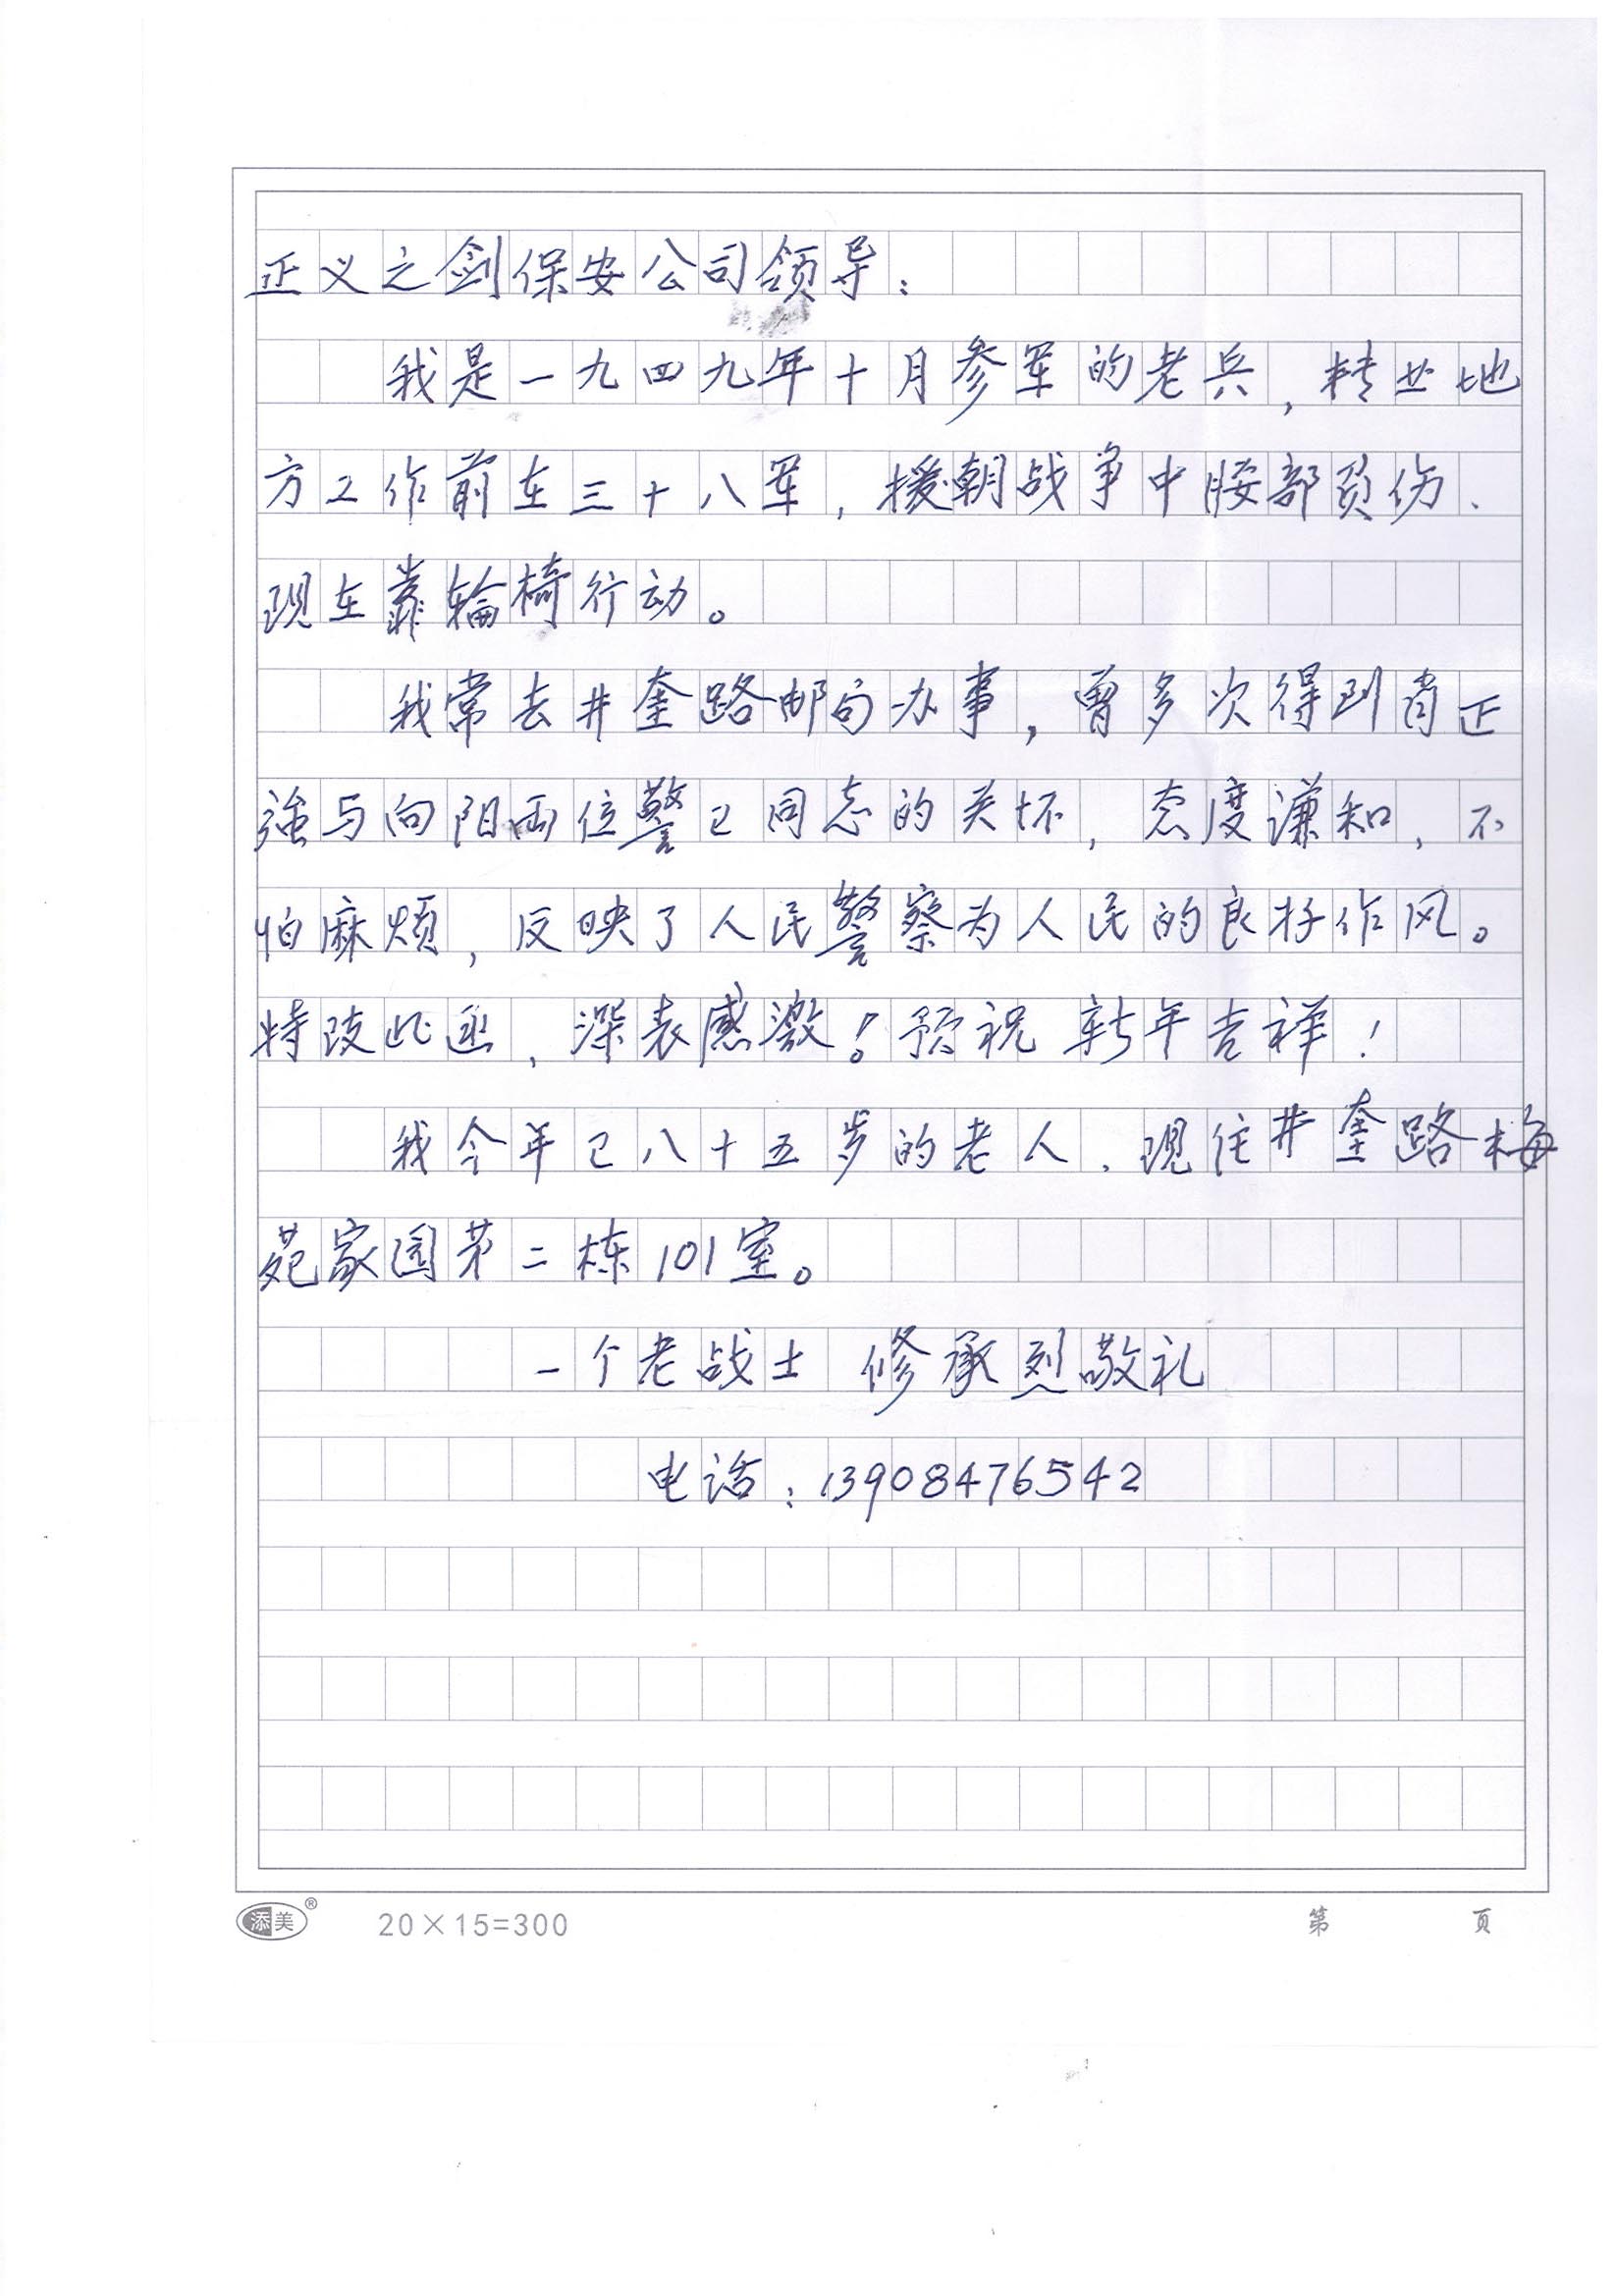 正义之剑保安公司领导：
我是一九四九年十月参军的老兵，转业地
方工作前在三十八军，援朝战争中腰部负伤、
现在靠轮椅行动。
我常去井奎路邮局办事，曾多次得到肖正
强与向阳两位警卫同志的关怀，态度谦和，不
怕麻烦，反映了人民警察为人民的良好作风。
特致此函，深表感激！预祝新年吉祥！
我今年已八十五岁的老人、现住井奎路梅
苑家园第二栋101室。
一个老战士 修承烈敬礼
电话：13908476542
添美® 20×15=300 第 页